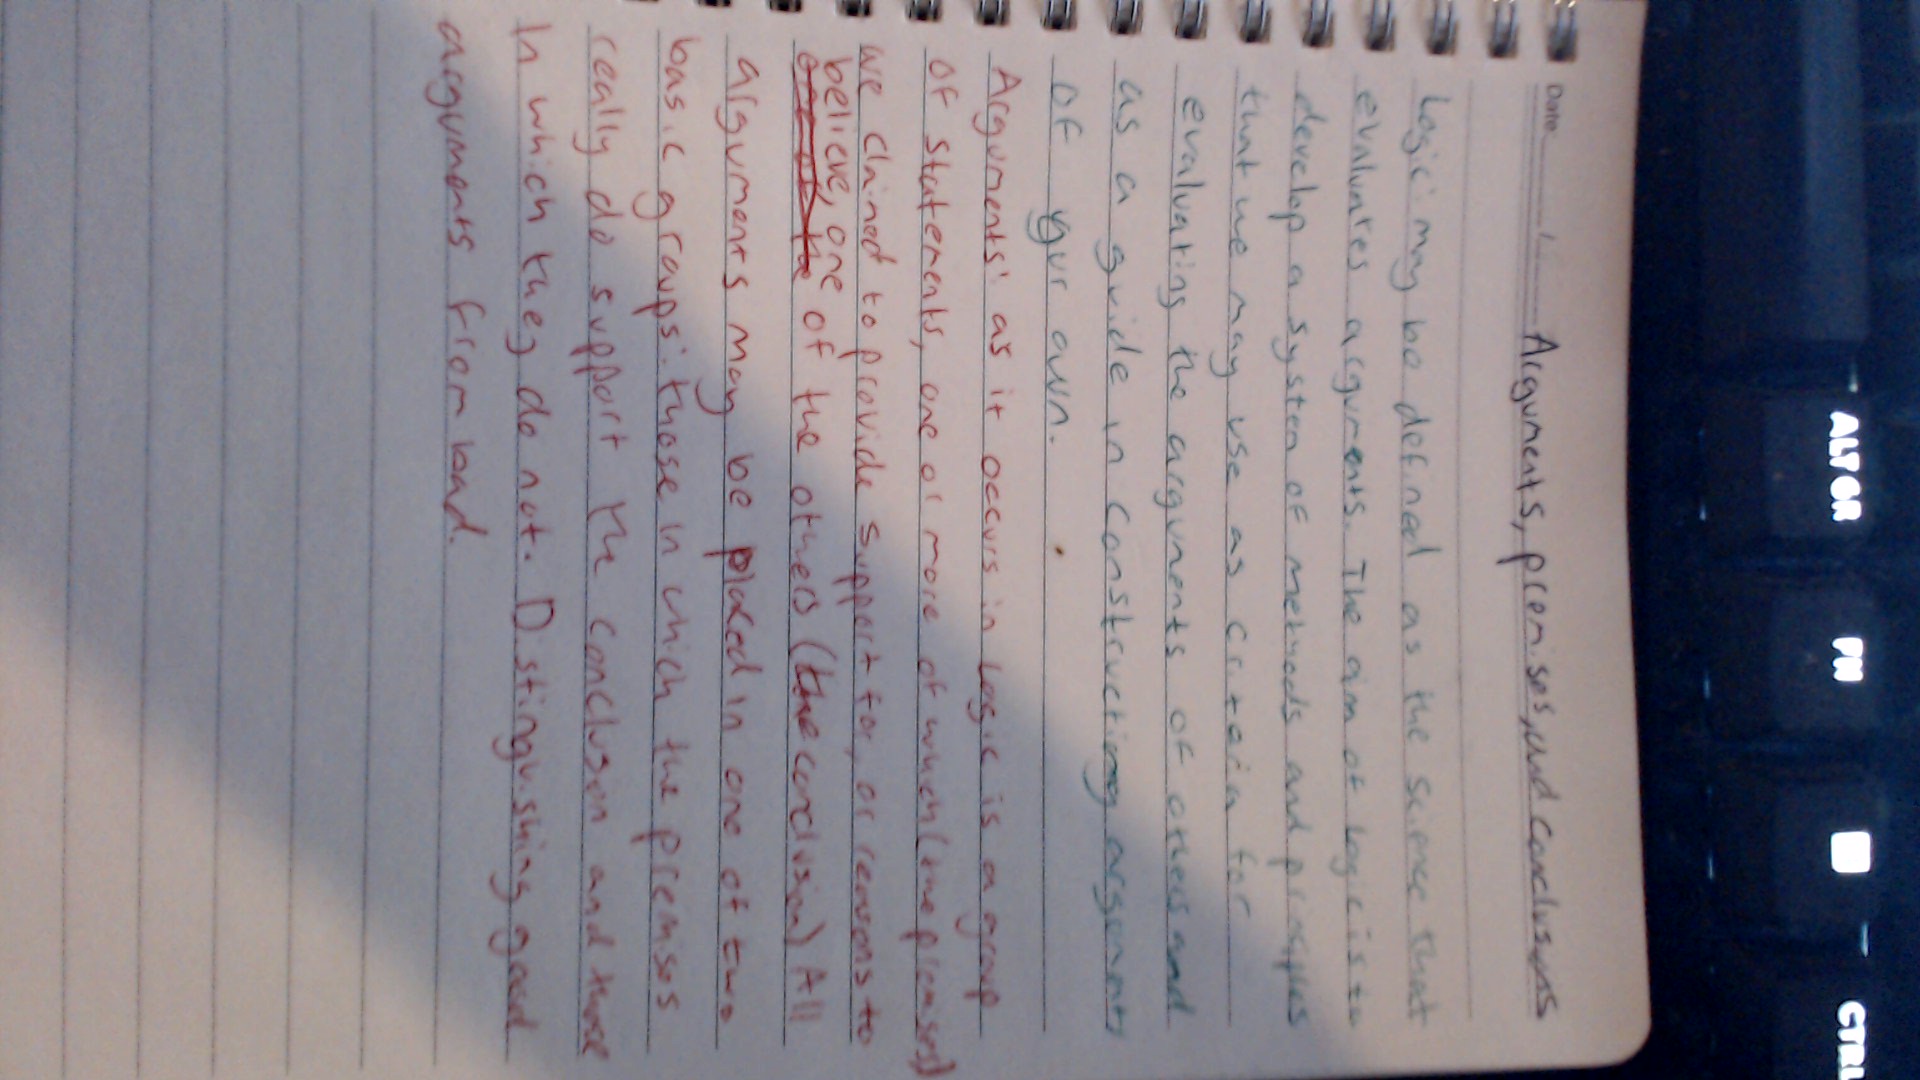 Date
Arguments, premises, and conclusions
Logic: may be defined as the science that
evaluates arguments. The aim of logic is to
develop a system of methods and principles
that we may use as criteria for
evaluating the arguments of others and
as a guide in constructing arguments
of your own.
Arguments: as it occurs in logic is a group
of statements, one or more of which (the premises)
we claimed to provide support for, or reasons to
believe, one of the others (the conclusion) All
arguments may be placed in one of two
basic groups: those in which the premises
really do support the conclusion and those
in which they do not. Distinguishing good
arguments from bad.
ALT GR
FN
CTRL